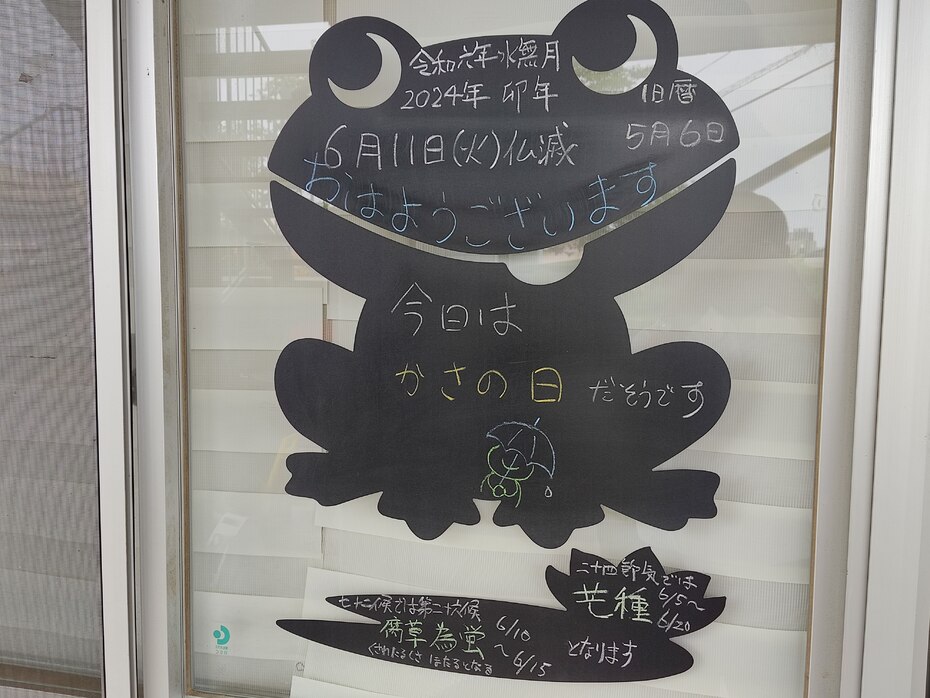 令和六年水無月
2024年 卯年
旧暦
5月6日
6月11日(火)仏滅
おはようございます
今日は
かさの日 だそうです
二十四節気では
芒種 6/5～
6/20
七十二候では第二十六候
腐草為蛍 6/10
～6/15
くされたるくさ ほたるとなる
となります